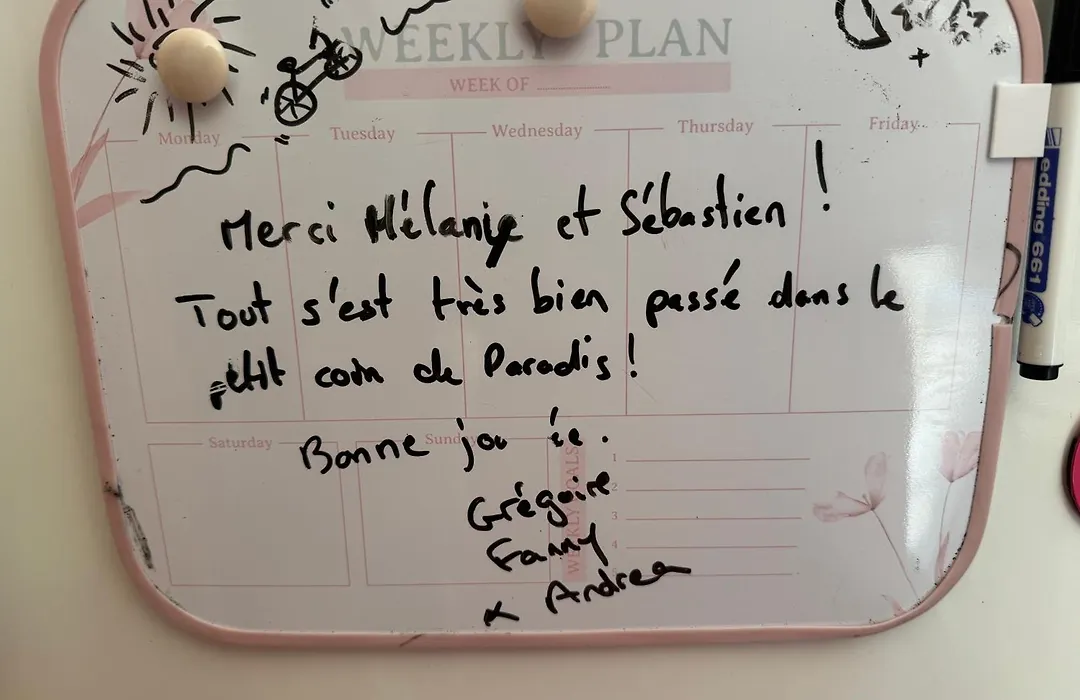 WEEKLY PLAN
WEEK OF
Monday Tuesday Wednesday Thursday Friday
Merci Mélanie et Sébastien !
Tout s'est très bien passé dans le
petit coin de Paradis !
Saturday Sunday
Bonne jou ée.
WEEKLY GOALS
1
2
3
4
Grégoire
Fanny
x Andrea
edding 661